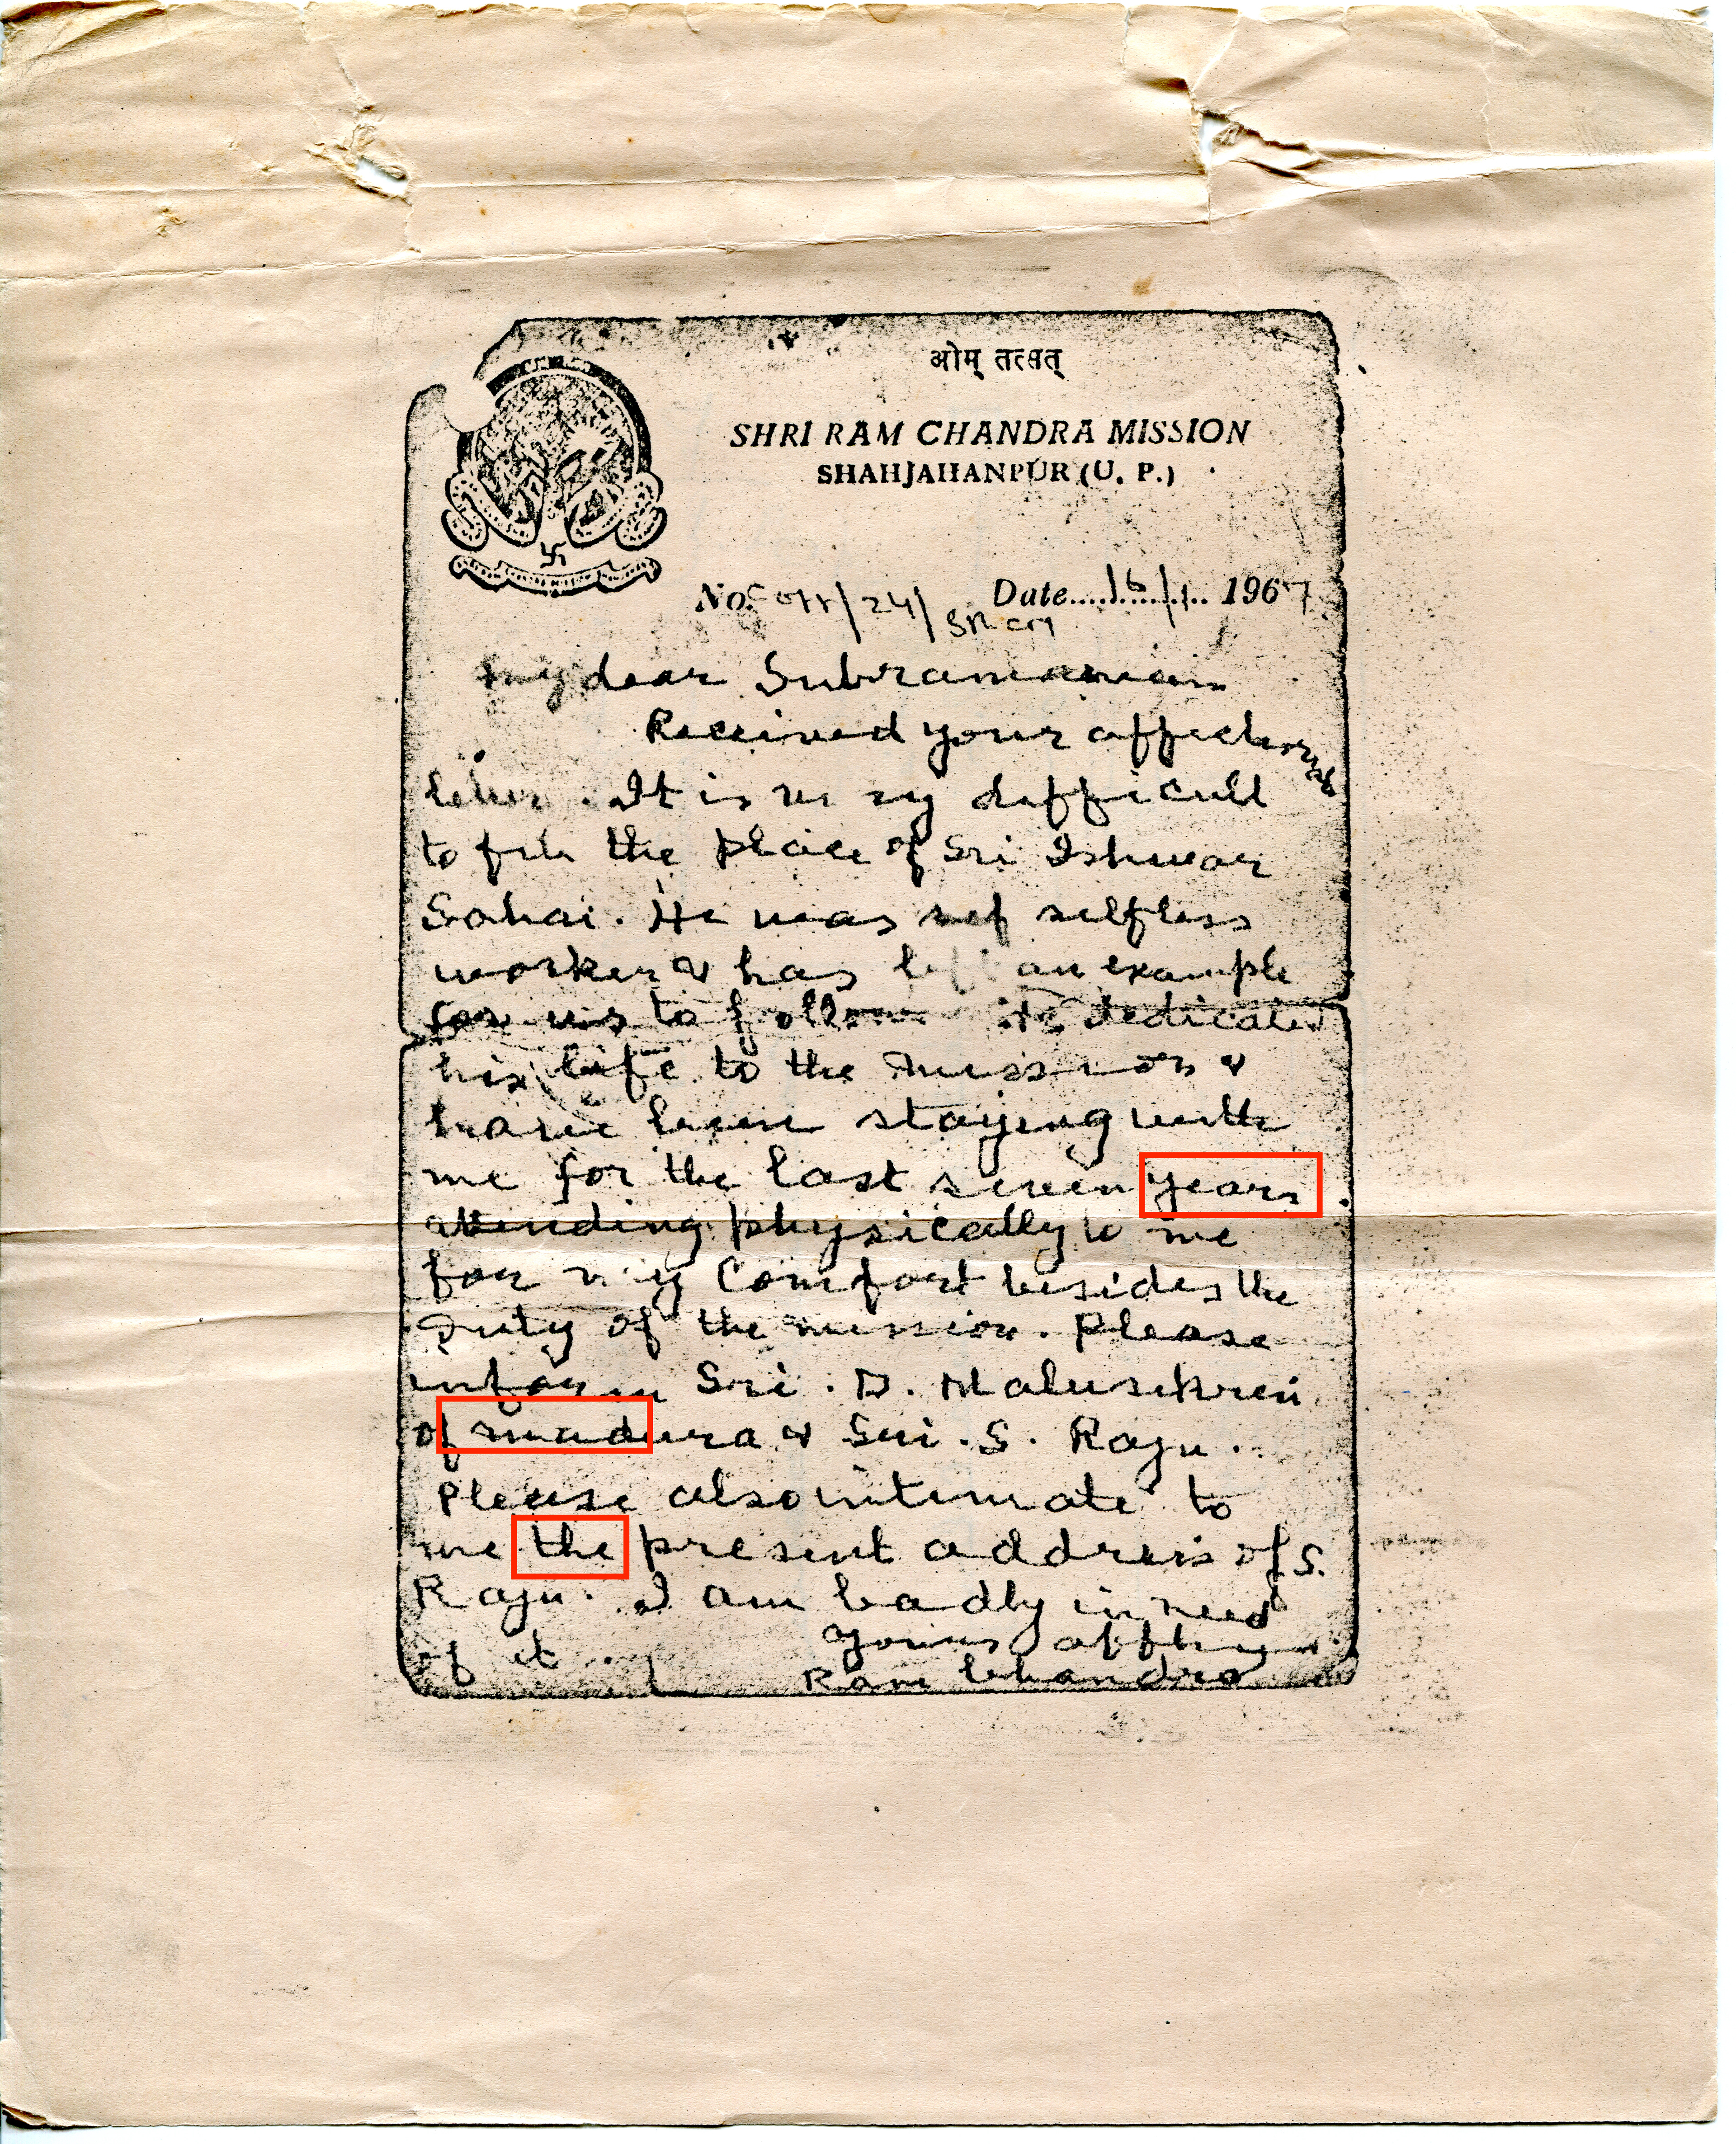 ओम् तत्सत्
SHRI RAM CHANDRA MISSION
SHAHJAHANPUR (U. P.)
No. /24/ SRCM Date.....16/1.. 1967
My dear Subramanian
Received your affectionate
letter. It is very difficult
to fill the place of Sri Ishwar
Sahai. He was selfless
worker & has left an example
for us to follow. He dedicated
his life to the mission &
have been staying with
me for the last seven years.
attending physically to me
for my comfort besides the
duty of the mission. Please
inform Sri. D.
of madura & Sri. S. Raju.
Please also intimate to
me the present address of S.
Raju. I am badly in need
of it.
Yours affly
Ram Chandra